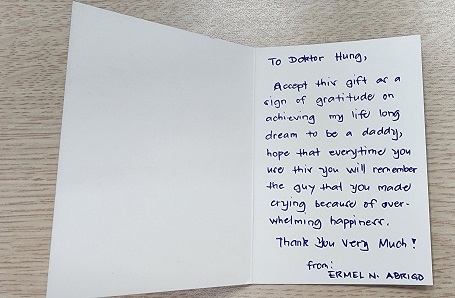 To Doktor Hung,
Accept this gift as a
sign of gratitude on
achieving my life long
dream to be a daddy,
hope that everytime you
use this you will remember
the guy that you made
crying because of over-
whelming happiness.
Thank you very Much!
from:
ERMEL N. ABRIGO